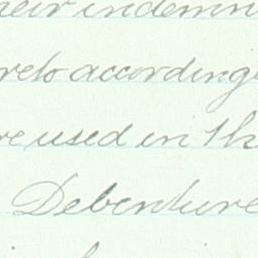 indemni
accordingl
used in th
Debenture